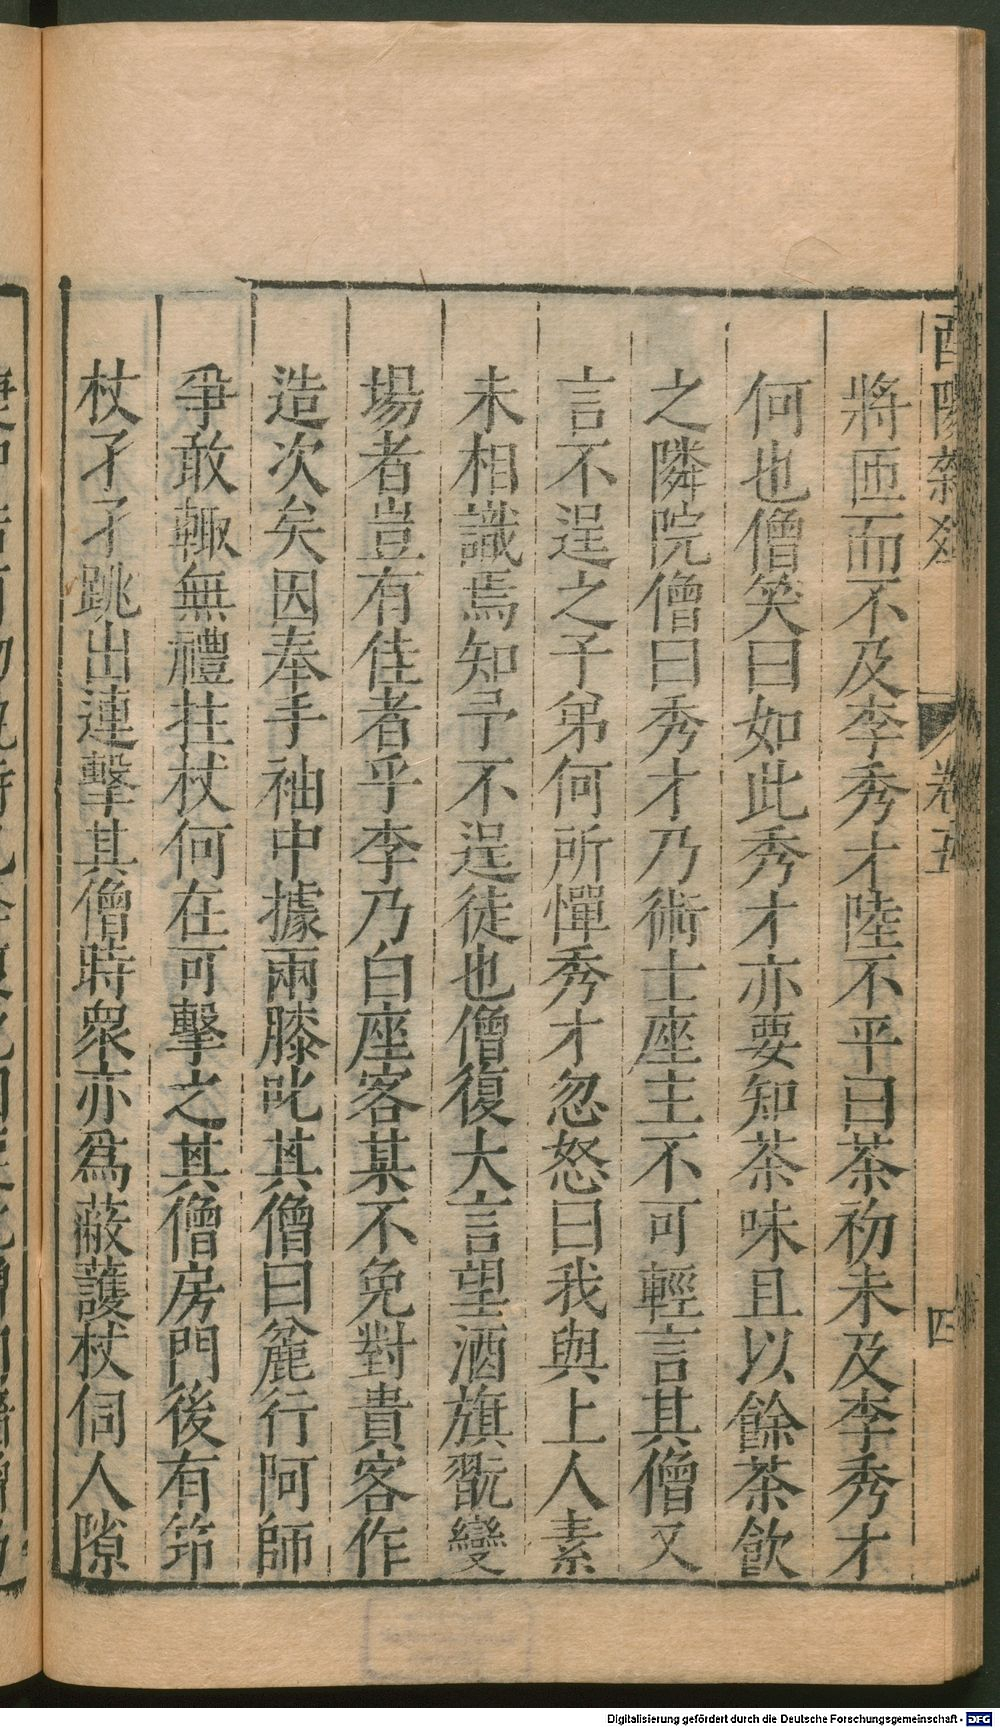 將匝而不及李秀才陸不平曰茶初未及李秀才
何也僧笑曰如此秀才亦要知茶味且以餘茶飲
之隣院僧曰秀才乃術士座主不可輕言其僧又
言不逞之子弟何所憚秀才忽怒曰我與上人素
未相識焉知予不逞徒也僧復大言望酒旗翫變
場者豈有佳者乎李乃白座客某不免對貴客作
造次矣因奉手袖中據兩膝叱其僧曰麄行阿師
爭敢輙無禮拄杖何在可擊之其僧房門後有筇
杖孑孑跳出連擊其僧時衆亦爲蔽護杖伺人隙
酉陽雜
卷五
四
Digitalisierung gefördert durch die Deutsche Forschungsgemeinschaft - DFG